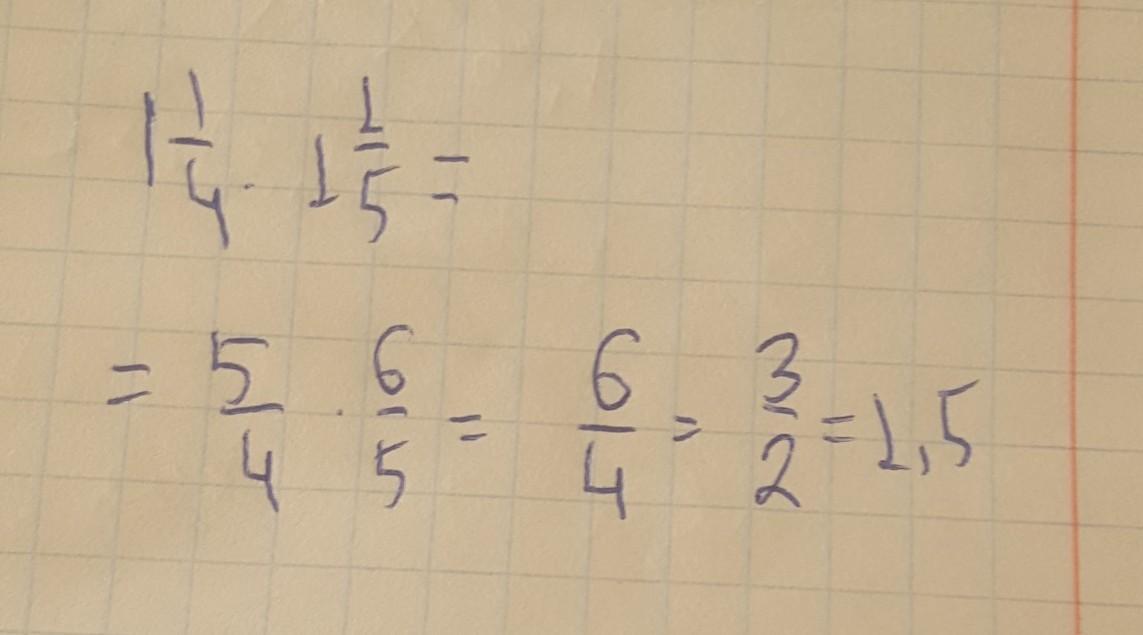 1 1/4 · 1 1/5 =
= 5/4 · 6/5 = 6/4 = 3/2 = 1,5